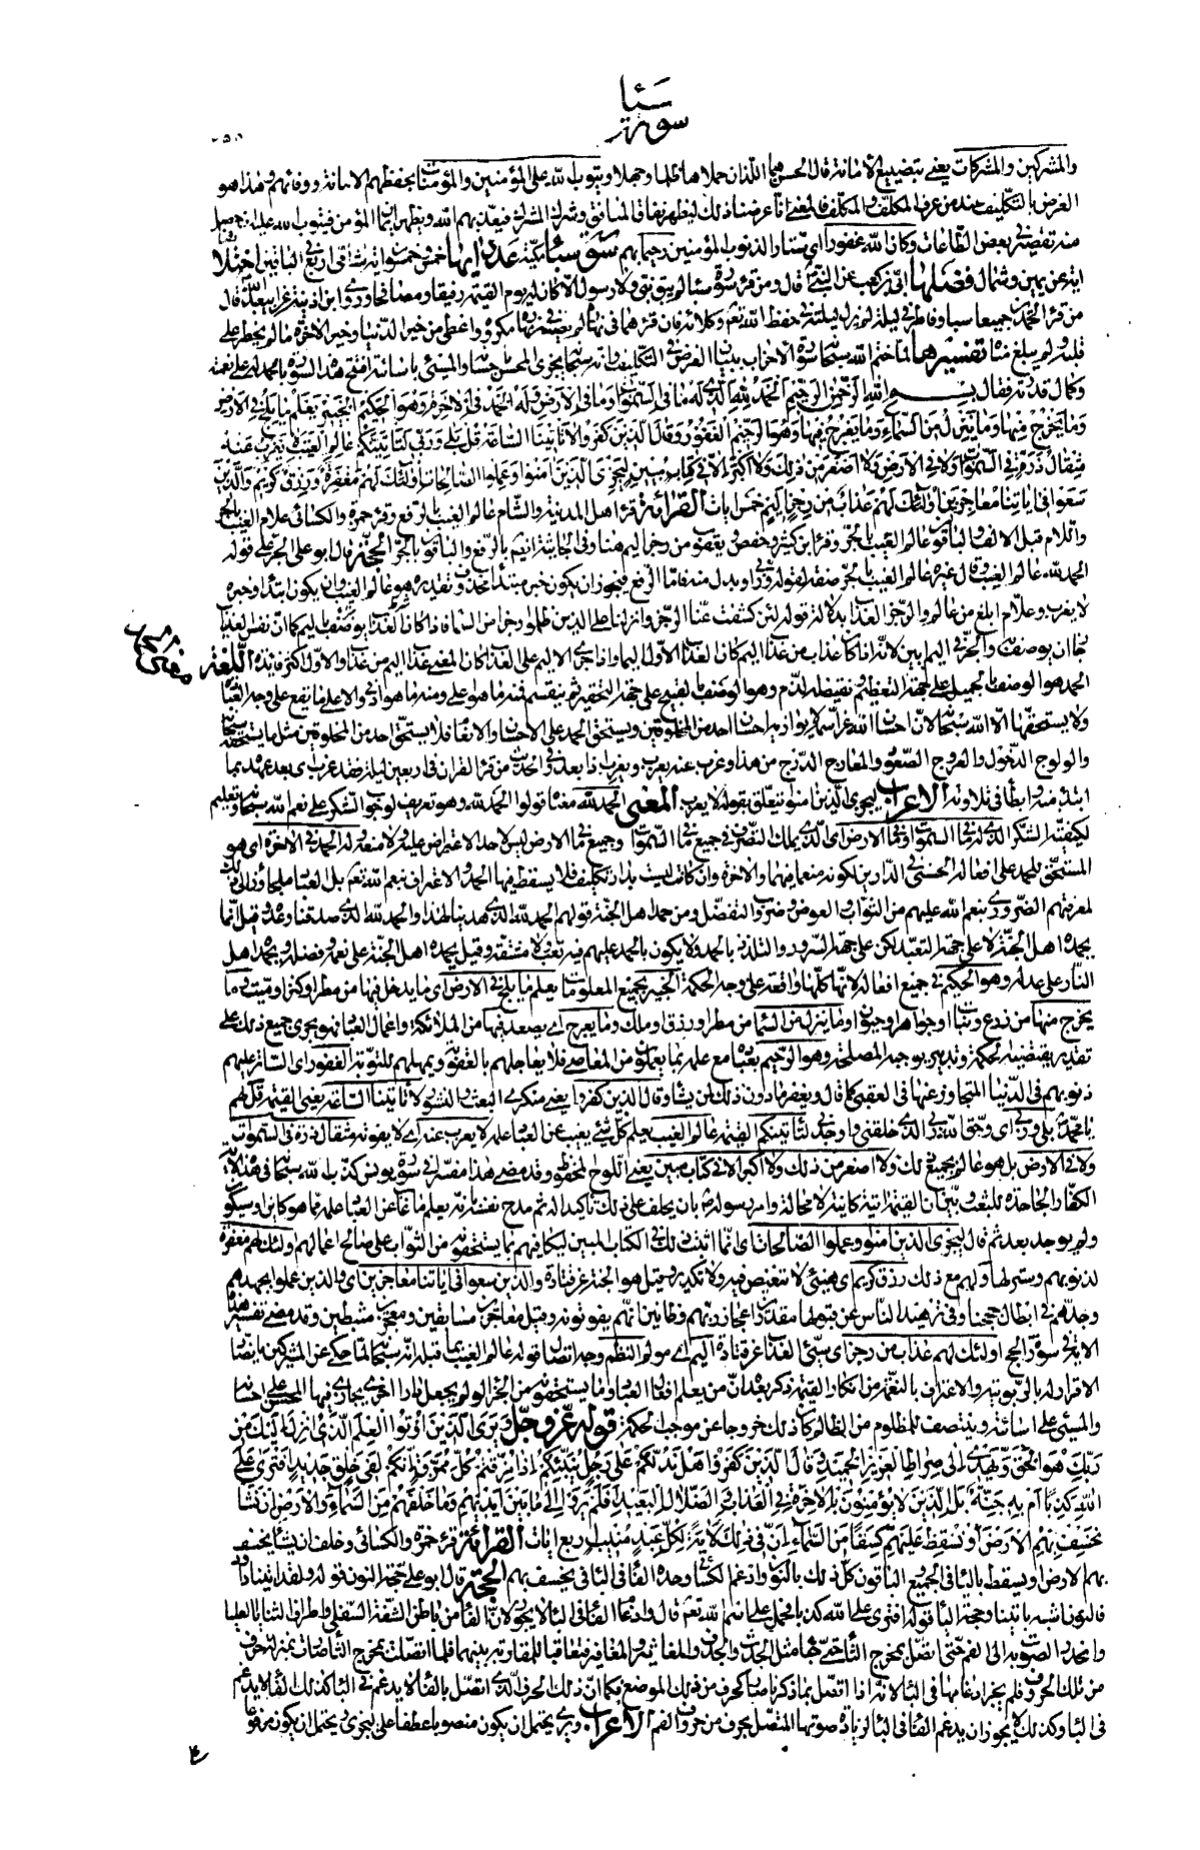 سبأ
سورة
والمشركين والمشركات يعني بتضييع الأمانة قال الحسن هما اللذان حملاها ظلما وجهلا ويتوب الله على المؤمنين والمؤمنات بحفظهم الأمانة ووفائهم وهذا هو
الغرض بالتكليف عند من عرف المكلف والمكلف فالمعنى انا عرضنا ذلك ليظهر نفاق المنافق وشرك المشرك فيعذبهم الله ويظهر ايمان المؤمن فيتوب الله عليه ان حصل
منه تقصير في بعض الطاعات وكان الله غفورا اي ستارا لذنوب المؤمنين رحيما بهم سورة سبأ مكية عدد ايها خمس وخمسون اية شامي اربع في الباقين اختلافها
اية عن يمين وشمال فضلها ابي بن كعب عن النبي قال ومن قرء سورة سبأ لم يبق نبي ولا رسول الا كان له يوم القيمة رفيقا ومصافحا وروى ابن اذينة عن ابي عبد الله قال
من قرأ الحمدين جميعا سبأ وفاطر في ليلة لم يزل ليلته في حفظ الله تعالى وكلائته فان قرأهما في نهاره لم يصبه في نهاره مكروه واعطي من خير الدنيا وخير الاخرة ما لم يخطر على
قلبه ولم يبلغ مناه تفسيرها لما ختم الله سبحانه سورة الاحزاب ببيان الغرض في التكليف وانه سبحانه يجزي المحسن باحسانه والمسيء باسائته افتتح هذه السورة بالحمد له على نعمته
وكمال قدرته فقال بسم الله الرحمن الرحيم الحمد لله الذي له ما في السموات وما في الارض وله الحمد في الاخرة وهو الحكيم الخبير يعلم ما يلج في الارض
وما يخرج منها وما ينزل من السماء وما يعرج فيها وهو الرحيم الغفور وقال الذين كفروا لا تاتينا الساعة قل بلى وربي لتاتينكم عالم الغيب لا يعزب عنه
مثقال ذرة في السموات ولا في الارض ولا اصغر من ذلك ولا اكبر الا في كتاب مبين ليجزي الذين امنوا وعملوا الصالحات اولئك لهم مغفرة ورزق كريم والذين
سعوا في اياتنا معاجزين اولئك لهم عذاب من رجز اليم خمس ايات القرائة قرء اهل المدينة والشام عالم الغيب بالرفع وقرء حمزة والكسائي علام الغيب بالجر
واللام قبل الالف والباقون عالم الغيب بالجر وقرأ ابن كثير وحفص ويعقوب من رجز اليم هنا وفي الجاثية اليم بالرفع والباقون بالجر الحجة قال ابو علي الجر على قوله
الحمد لله عالم الغيب وقال غيره عالم الغيب بالجر صفة لقوله وربي او بدل منه فاما الرفع فيجوز ان يكون خبر مبتدأ محذوف وتقديره هو عالم الغيب وان يكون ابتداء وخبره
لا يعزب وعلام ابلغ من عالم والرجز العذاب بدلالة قوله لئن كشفت عنا الرجز وانزلنا على الذين ظلموا رجزا من السماء فاذا كان العذاب يوصف باليم كما ان نفس العذاب
جاز ان يوصف به والجر في اليم ابين لانه اذا كان عذاب من عذاب اليم كان العذاب الاول اليما واذا جرى الاليم على العذاب كان المعنى عذاب اليم من عذاب والاول اكثر فائدة اللغة
الحمد هو الوصف بالجميل على جهة التعظيم ونقيضه الذم وهو الوصف بالقبيح على جهة التحقير ثم ينقسم فمنه ما هو اعلى ومنه ما هو ادنى والاعلى ما يقع على وجه العبادة
ولا يستحقها الا الله سبحانه لان احسان الله عز اسمه لا يوازيه احسان احد من المخلوقين ويستحق الحمد على الاحسان والانعام فلا يستحق احد من المخلوقين مثل ما يستحقه سبحانه
والولوج الدخول والعروج الصعود والمعارج الدرج من هذا وعزب عنه يعزب ويعزب اذا بعد وفي الحديث من قرأ القرآن في اربعين ليلة فقد عزب اي بعد عهده بما
ابتدأ منه وابطأ في تلاوته الاعراب ليجزي الذين امنوا يتعلق بقوله لا يعزب المعنى الحمد لله معناه قولوا الحمد لله وهو تعريف لوجوب الشكر على نعم الله سبحانه وتعليم
لكيفية الشكر الذي له ما في السموات وما في الارض اي الذي يملك التصرف في جميع ما في السموات وجميع ما في الارض ليس لاحد الاعتراض عليه ولا منعه وله الحمد في الاخرة اي هو
المستحق للحمد على افعاله الحسنى في الدارين لكونه منعما فيهما والاخرة وان كانت ليست بدار تكليف فلا يسقط فيها الحمد والاعتراف بنعم الله تعالى بل العباد ملجأون الى ذلك
لمعرفتهم الضرورية بنعم الله عليهم من الثواب والعوض وضروب التفضل ومن حمد اهل الجنة قولهم الحمد لله الذي هدينا لهذا والحمد لله الذي صدقنا وعده وقيل انما
يحمده اهل الجنة لا على جهة التعبد لكن على جهة السرور والتلذذ بالحمد ولا يكون بالحمد عليهم فيه تعب ولا مشقة وقيل يحمده اهل الجنة على نعمه وفضله ويحمده اهل
النار على عدله وهو الحكيم في جميع افعاله لانها كلها واقعة على وجه الحكمة الخبير بجميع المعلومات يعلم ما يلج في الارض اي ما يدخل فيها من مطر او كنز او ميت وما
يخرج منها من زرع ونبات او جواهر او حيوان وما ينزل من السماء من مطر او رزق او ملك وما يعرج اي يصعد فيها من الملائكة واعمال العباد فهو يجري جميع ذلك على
تقدير يقتضيه الحكمة وتدبير يوجبه المصلحة وهو الرحيم بعباده مع علمه بما يعملون من المعاصي فلا يعاجلهم بالعقوبة ويمهلهم للتوبة الغفور اي الساتر عليهم
ذنوبهم في الدنيا المتجاوز عنها في العقبى كما قال ويغفر ما دون ذلك لمن يشاء وقال الذين كفروا يعني منكري البعث والنشور لا تاتينا الساعة يعني القيمة قل لهم
يا محمد بلى وربي اي وحق الله ربي الذي خلقني واوجدني لتاتينكم القيمة عالم الغيب يعلم كل شيء يغيب عن العباد علمه لا يعزب عنه اي لا يفوته مثقال ذرة في السموات
ولا في الارض بل هو عالم بجميع ذلك ولا اصغر من ذلك ولا اكبر الا في كتاب مبين يعني اللوح المحفوظ وقد مضى هذا مفسرا في سورة يونس كذب الله سبحانه في هذه الاية
الكفار الجاحدة للبعث وبين ان القيمة اتية كاينة لا محالة وامر رسوله بان يحلف على ذلك تاكيدا له ثم مدح نفسه بانه يعلم ما غاب عن العباد علمه مما هو كاين وسيكون
ولم يوجد بعد ثم قال ليجزي الذين امنوا وعملوا الصالحات اي انما اثبت ذلك في الكتاب المبين ليكافيهم بما يستحقونه من الثواب على صالح اعمالهم ولئك لهم مغفرة
لذنوبهم وستر لها ولهم مع ذلك رزق كريم اي هنيء لا تنغيص فيه ولا تكدير وقيل هو الجنة عن قتادة والذين سعوا في اياتنا معاجزين اي والذين عملوا بجهدهم
وجدهم في ابطال حججنا وفي تزهيد الناس عن قبولها مقدرين اعجاز ربهم وظانين انهم يفوتونه وقيل معاجزين مسابقين ومعجزين مثبطين وقد مضى تفسير هذه
الاية في سورة الحج اولئك لهم عذاب من رجز اي سيء العذاب عن قتادة اليم اي مولم النظم وجه اتصال قوله عالم الغيب بما قبله انه سبحانه لما حكى عن المشركين ما يضاد
الاقرار له بالربوبية والاعتراف بالنعمة من انكار القيمة ذكر بعده ان من يعلم افعال العباد وما يستحقونه من الجزاء لو لم يجعل دارا اخرى يجازى فيها المحسن على احسانه
والمسيء على اسائته وينتصف للمظلوم من الظالم كان ذلك خروجا عن موجب الحكمة قوله عز وجل ويرى الذين اوتوا العلم الذي انزل اليك من
ربك هو الحق ويهدي الى صراط العزيز الحميد وقال الذين كفروا هل ندلكم على رجل ينبئكم اذا مزقتم كل ممزق انكم لفي خلق جديد افترى على
الله كذبا ام به جنة بل الذين لا يؤمنون بالاخرة في العذاب والضلال البعيد افلم يروا الى ما بين ايديهم وما خلفهم من السماء والارض ان نشأ
نخسف بهم الارض او نسقط عليهم كسفا من السماء ان في ذلك لاية لكل عبد منيب اربع ايات القرائة قرء حمزة والكسائي وخلف ان يشأ يخسف
بهم الارض او يسقط بالياء في الجميع الباقون كل ذلك بالنون وادغم الكسائي وحده الفاء في الباء في يخسف بهم الحجة قال ابو علي حجة النون قوله ولقد اتينا داود
فالنون اشبه باتينا وحجة الياء قوله افترى على الله كذبا فحمل على اسم الله تعالى قال وادغام الفاء في الباء لا يجوز لان الفاء من باطن الشفة السفلى واطراف الثنايا العليا
وانحدر الصوت به الى الفم حتى اتصل بمخرج الثاء حتى جاء مثل الجدث والجدف والمغاثير والمغافير فتعاقبا للمقاربة بينهما فلما اتصلت بمخرج الثاء صارت بمنزلة حرف
من تلك الحروف فلم يجز ادغامها في الباء لانه اذا اتصل بما ذكرنا صار كحرف من ذلك الموضع فكما ان ذلك الحرف الذي اتصل بالفاء لا يدغم في الباء كذلك الفاء لا يدغم
في الباء وكذلك لا يجوز ان يدغم الفاء في الباء لزيادة صوتها المتصل بحرف من حروف الفم الاعراب ويرى يحتمل ان يكون منصوبا عطفا على ليجزي ويحتمل ان يكون مرفوعا